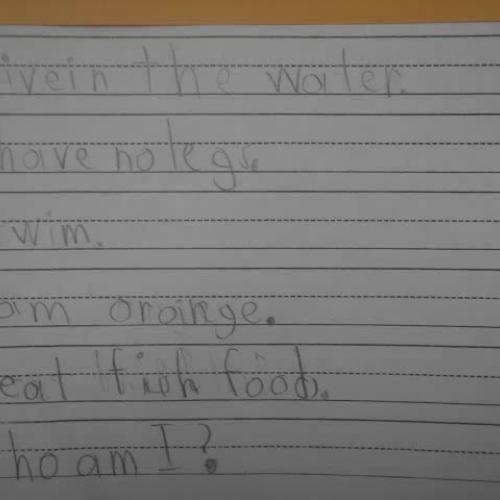 ivein the water.
have no legs.
wim.
am orainge.
eat fish food.
ho am I?